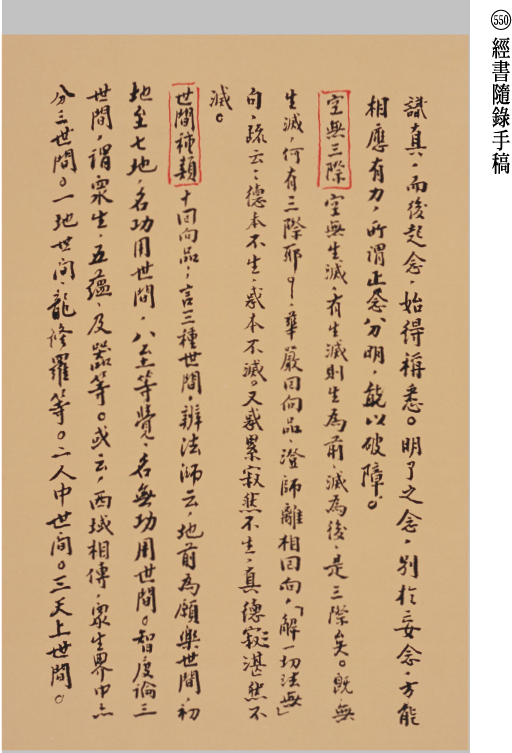 550 經書隨錄手稿
識真，而後起念，始得稱悉。明了之念，別於妄念，方能
相應有力，所謂正念分明，能以破障。
空無三際 空無生滅，有生滅則生為前，滅為後，是三際矣。既無
生滅，何有三際耶！華嚴回向品，澄師離相回向，「解一切法無」
句，疏云：德本不生，惑本不滅。又惑累寂然不生，真德寂湛然不
滅。
世間種類 十回向品；言三種世間，辨法師云，地前為願樂世間，初
地至七地，名功用世間，八至等覺，名無功用世間。智度論三
世間，謂眾生，五蘊，及器等。或云，西域相傳，眾生界中亦
分三世間。一地世間，龍修羅等。二人中世間。三天上世間。